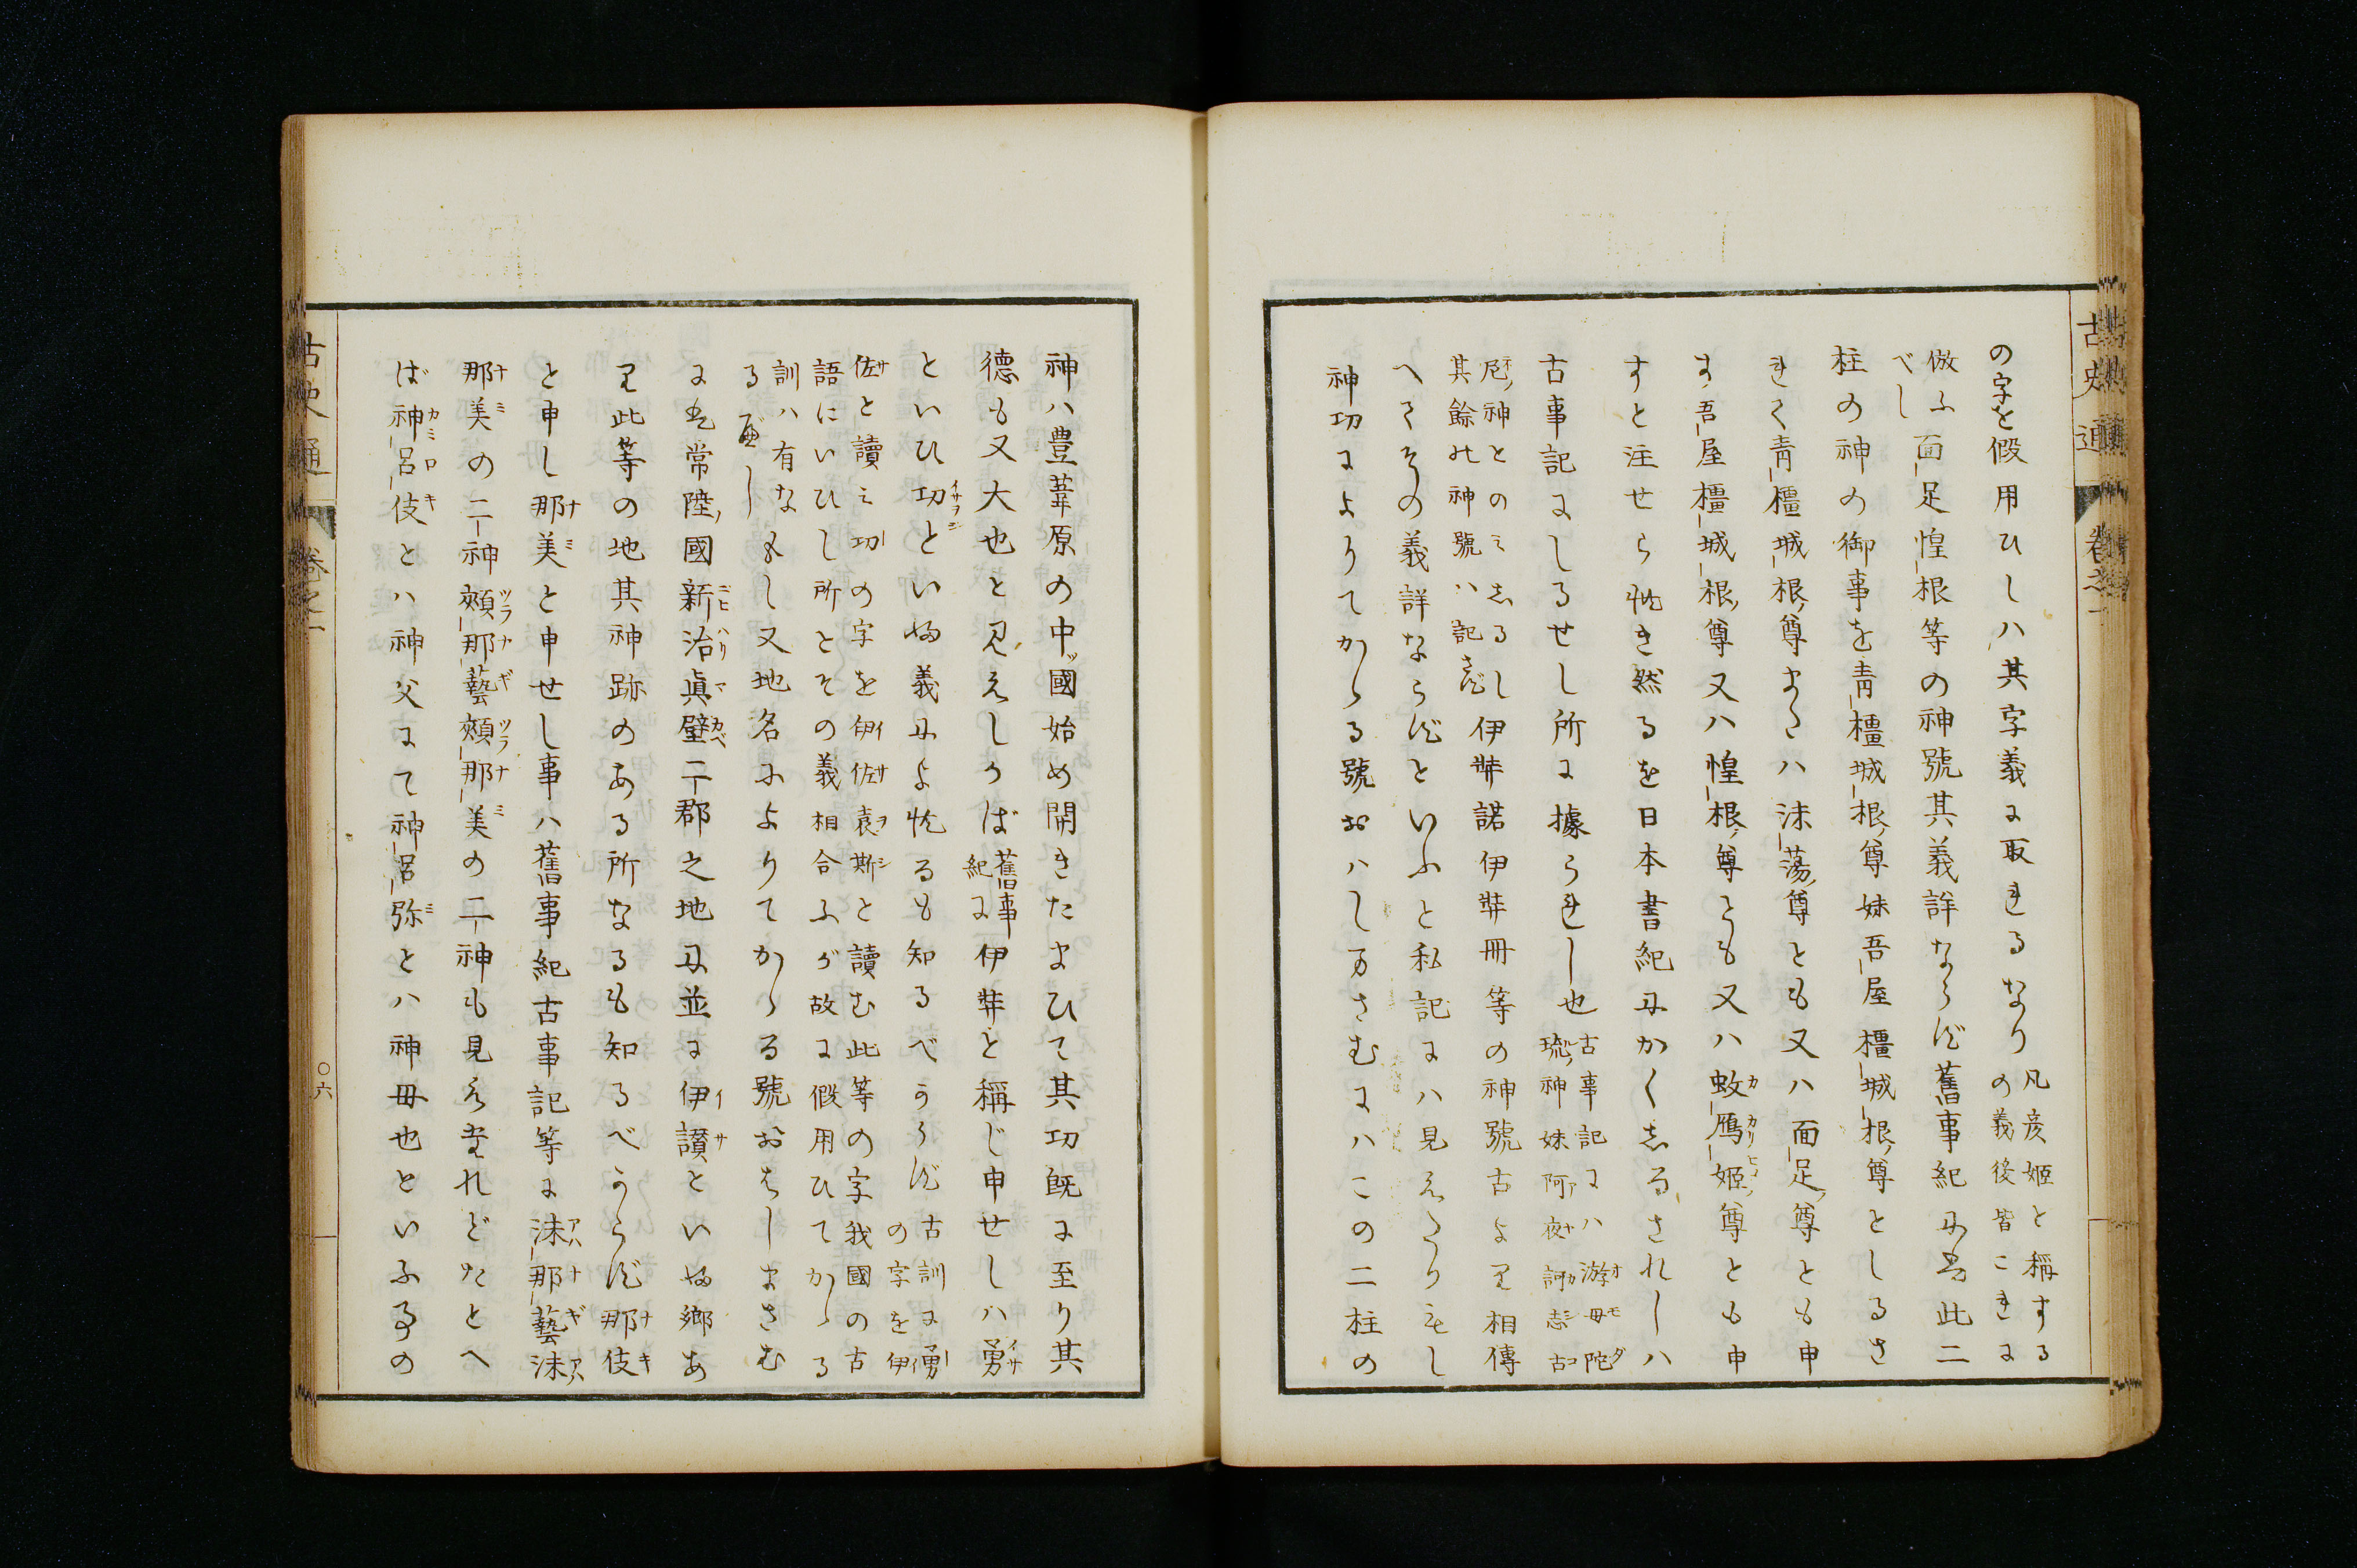 古史通 卷之一
の字を假用ひしハ其字義に取れるなり凡彦姫と稱する
の義後皆これに
倣ふべし
面足惶根等の神號其義詳ならず舊事紀に此二
柱の神の御事を靑橿城根尊妹吾屋橿城根尊としるさ
れて靑橿城根尊またハ沫蕩尊とも又ハ面足尊とも申
す吾屋橿城根尊又ハ惶根尊とも又ハ蚊鴈姬尊とも申
すと注せられき然るを日本書紀にかくしるされしハ
古事記にしるせし所に據られし也
古事記にハ游母陀
琉神妹阿夜訶志古
泥神とのミしるし
其餘の神號ハ記さず
伊弉諾伊弉冊等の神號古より相傳
へてその義詳ならずといふと私記にハ見えたりもし
神功によりてかゝる號おハしまさむにハこの二柱の
神ハ豊葦原の中國始め開きたまひて其功既に至り其
德も又大也と見えしかば
舊事
紀に
伊弉と稱じ申せしハ勇
といひ功といふ義によれるも知るべからず
古訓に勇
の字を伊
佐と讀ミ功の字を伊佐袁斯と讀む此等の字我國の古
語にいひし所とその義相合ふが故に假用ひてかゝる
訓ハ有なるべし
もし又地名によりてかゝる號おはしまさむ
には常陸國新治眞壁二郡之地に並に伊讃といふ鄉あ
り此等の地其神跡のある所なるも知るべからず那伎
と申し那美と申せし事ハ舊事紀古事記等に沫那藝沫
那美の二神頰那藝頰那美の二神も見えたれどたとへ
ば神呂伎とハ神父にて神呂弥とハ神母也といふ事の
古史通 卷之一 〇六